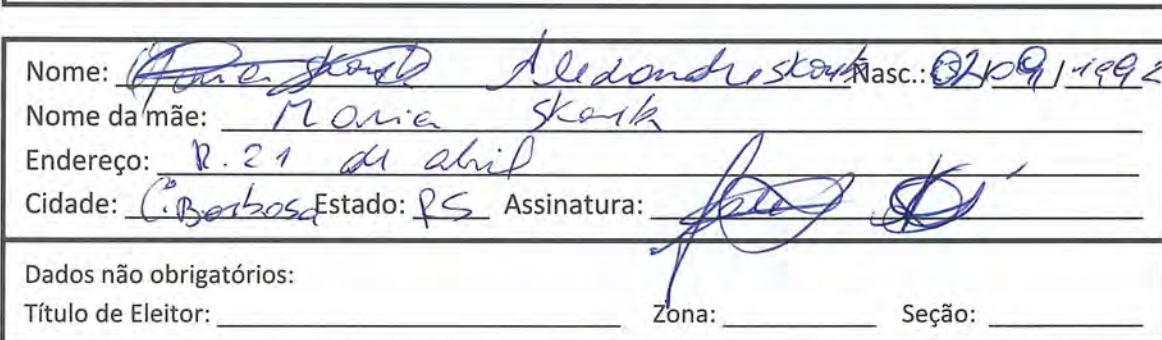 Nome: Maria Skorek Alexandre Skorek Nasc.: 02/09/1992
Nome da mãe: Maria
Endereço: R. 21 de abril
Cidade: C. Barbosa Estado: RS Assinatura:
Dados não obrigatórios:
Título de Eleitor: Zona: Seção: